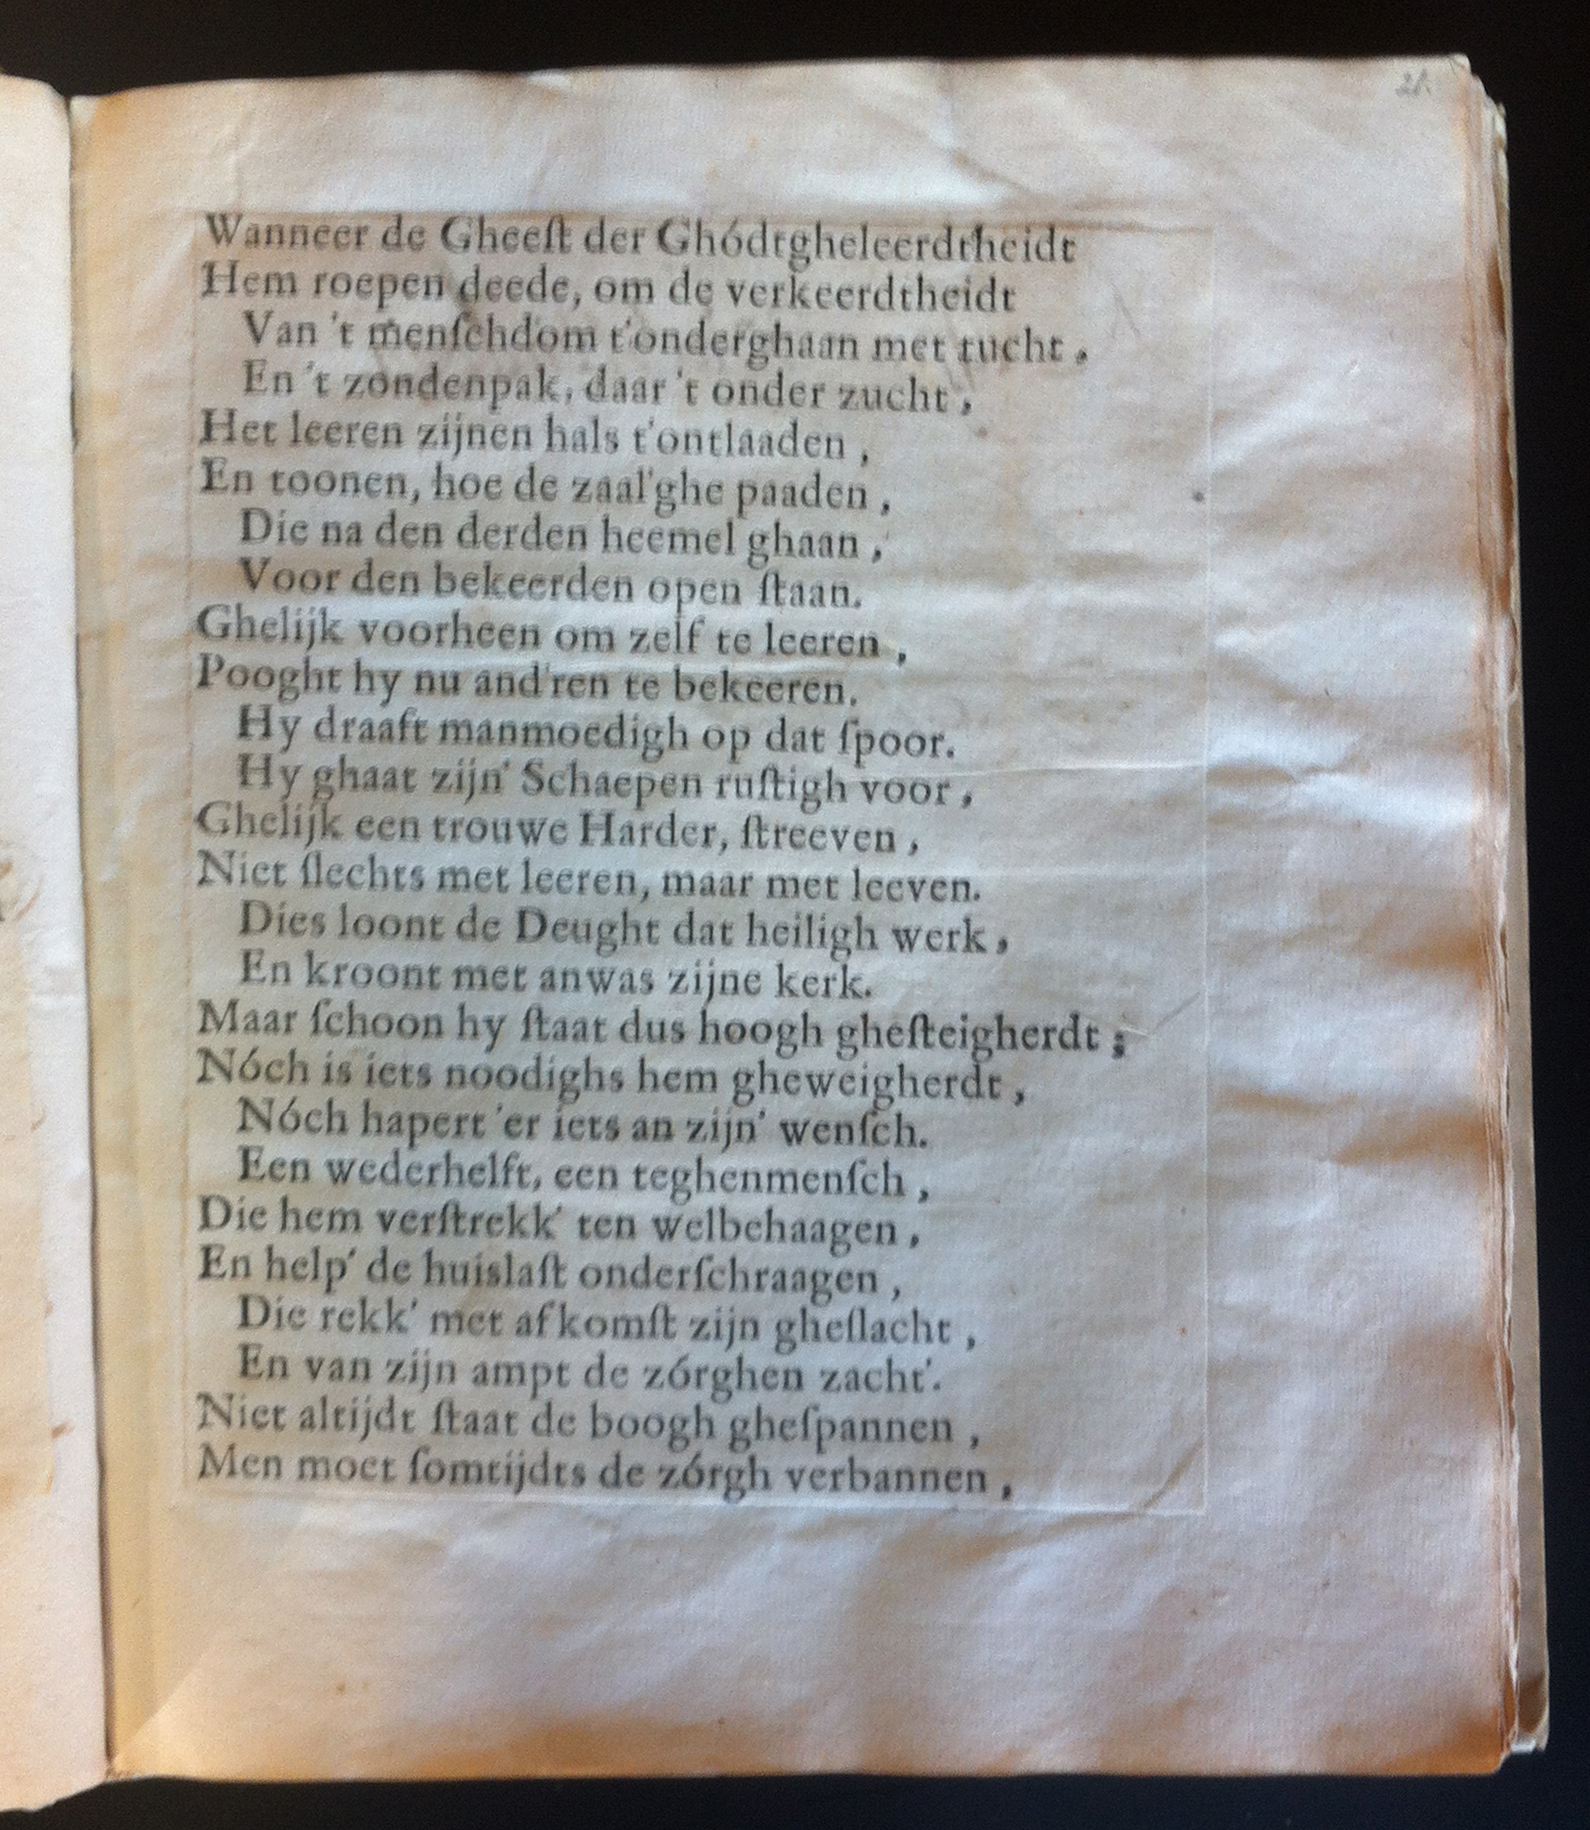 28.
Wanneer de Gheeſt der Ghódtgheleerdtheidt
Hem roepen deede, om de verkeerdtheidt
Van 't menſchdom t'onderghaan met tucht,
En 't zondenpak, daar 't onder zucht,
Het leeren zijnen hals t'ontlaaden,
En toonen, hoe de zaal'ghe paaden,
Die na den derden heemel ghaan,
Voor den bekeerden open ſtaan.
Ghelijk voorheen om zelf te leeren,
Pooght hy nu and'ren te bekeeren.
Hy draaft manmoedigh op dat ſpoor.
Hy ghaat zijn' Schaepen ruſtigh voor,
Ghelijk een trouwe Harder, ſtreeven,
Niet ſlechts met leeren, maar met leeven.
Dies loont de Deught dat heiligh werk,
En kroont met anwas zijne kerk.
Maar ſchoon hy ſtaat dus hoogh gheſteigherdt;
Nóch is iets noodighs hem gheweigherdt,
Nóch hapert 'er iets an zijn' wenſch.
Een wederhelft, een teghenmenſch,
Die hem verſtrekk' ten welbehaagen,
En help' de huislaſt onderſchraagen,
Die rekk' met afkomſt zijn gheſlacht,
En van zijn ampt de zórghen zacht'.
Niet altijdt ſtaat de boogh gheſpannen,
Men moet ſomtijdts de zórgh verbannen,